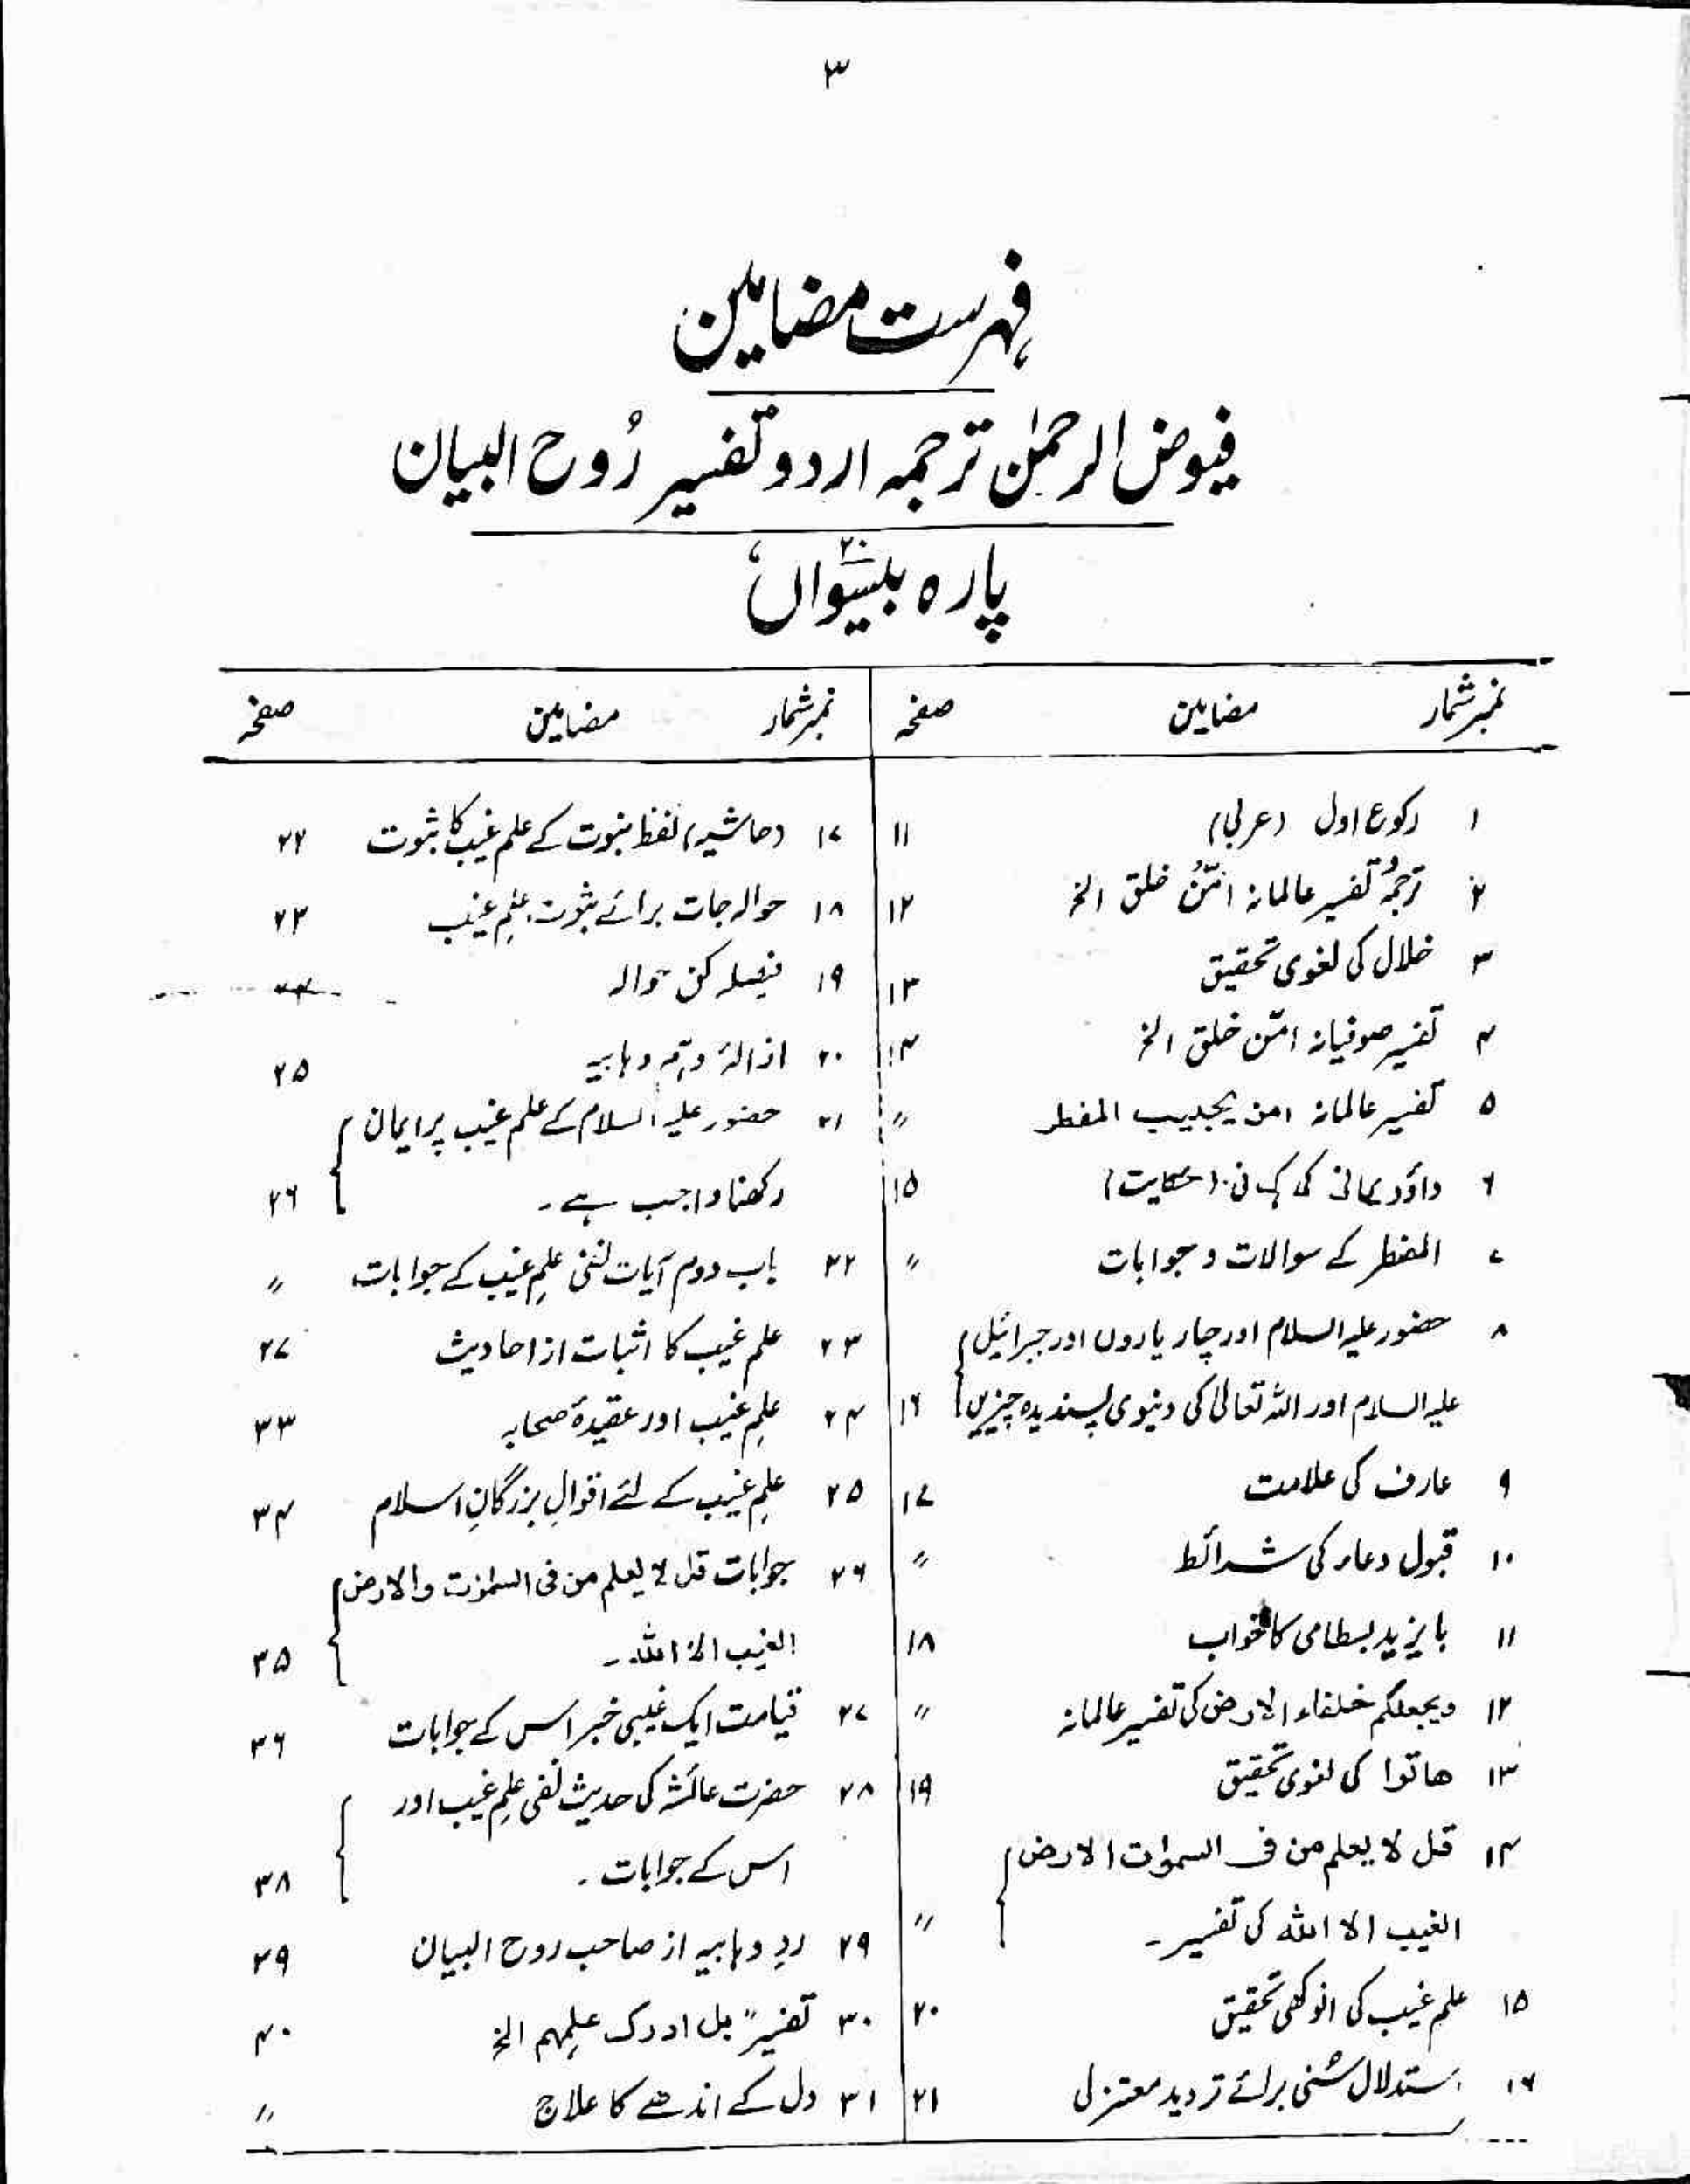 ۳
فہرست مضامین
فیوض الرحمٰن ترجمہ اردو تفسیر رُوح البیان
پارہ بیسواں ۲۰
نمبر شمار مضامین صفحہ
۱ رکوع اول (عربی) ۱۱
۲ ترجمہ تفسیر عالمانہ امّنْ خلق الخ ۱۲
۳ خلال کی لغوی تحقیق ۱۳
۴ تفسیر صوفیانہ امّن خلق الخ ۱۴
۵ تفسیر عالمانہ امن یجیب المضطر ״
۶ داؤد یمانی کی کہانی (حکایت) ۱۵
۷ المضطر کے سوالات و جوابات ״
۸ حضور علیہ السلام اور چار یاروں اور جبرائیل
علیہ السلام اور اللہ تعالیٰ کی دنیوی پسندیدہ چیزیں ۱۶
۹ عارف کی علامت ۱۷
۱۰ قبول دعاء کی شرائط ״
۱۱ بایزید بسطامی کا خواب ۱۸
۱۲ ویجعلکم خلفاء الارض کی تفسیر عالمانہ ״
۱۳ ھاتوا کی لغوی تحقیق ۱۹
۱۴ قل لا یعلم من فی السموات الارض
الغیب الا اللہ کی تفسیر۔ ״
۱۵ علم غیب کی انوکھی تحقیق ۲۰
۱۶ استدلال سُنی برائے تردید معتزلی ۲۱
نمبر شمار مضامین صفحہ
۱۷ (حاشیہ) لفظ نبوت کے علم غیب کا ثبوت ۲۲
۱۸ حوالہ جات برائے ثبوت علمِ غیب ۲۳
۱۹ فیصلہ کن حوالہ
۲۰ ازالۂ وہم وہابیہ ۲۵
۲۱ حضور علیہ السلام کے علم غیب پر ایمان
رکھنا واجب ہے۔ ۲۶
۲۲ باب دوم آیات نفی علمِ غیب کے جوابات ״
۲۳ علم غیب کا اثبات از احادیث ۲۷
۲۴ علمِ غیب اور عقیدۂ صحابہ ۳۳
۲۵ علمِ غیب کے لئے اقوالِ بزرگانِ اسلام ۳۴
۲۶ جوابات قل لا یعلم من فی السمٰوٰت والارض
الغیب الا اللہ۔ ۳۵
۲۷ قیامت ایک غیبی خبر اس کے جوابات ۳۶
۲۸ حضرت عائشہ کی حدیث نفی علمِ غیب اور
اس کے جوابات۔ ۳۸
۲۹ ردِ وہابیہ از صاحب روح البیان ۳۹
۳۰ تفسیر״ بل ادرک علمہم الخ ۴۰
۳۱ دل کے اندھے کا علاج ״